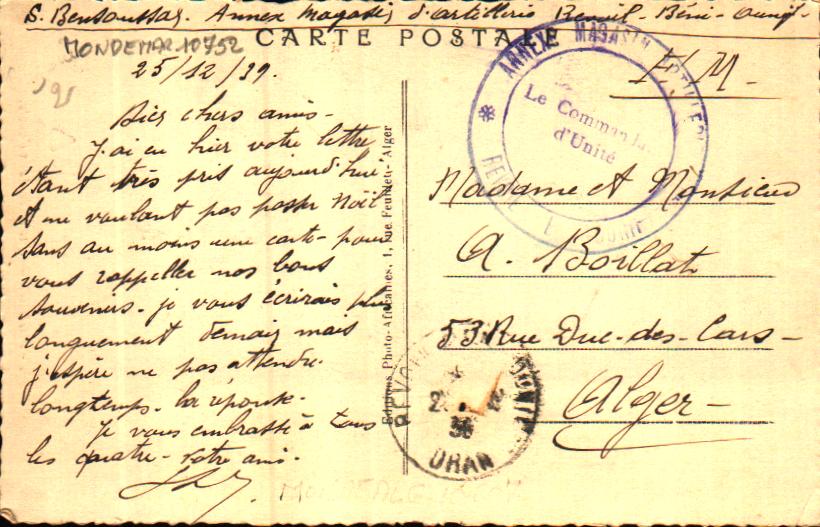 S. Bensoussan. Annex Magasin d'artillerie Revoil-Béni-Ounif-
MONDEMAR 10752
CARTE POSTALE
25/12/39.
F.M.
Bien chers amis-
J'ai eu hier votre lettre
étant très pris aujourd'hui
et ne voulant pas passer Noël
sans au moins une carte- pour
vous rappeller nos bons
souvenirs- je vous écrirais plus
longuement demain mais
j'espère ne pas attendre
longtemps- la réponse-
Je vous embrasse à tous
les quatre- votre ami-
Editions Photo-Africaines, 1, rue Feuillet-Alger
ANNEXE MAGASIN ARTILLERIE
Le Comman
d'Unité
REVOIL
Madame et Monsieur
A. Boillat
53 Rue Duc-des-Cars-
Alger-
ORAN